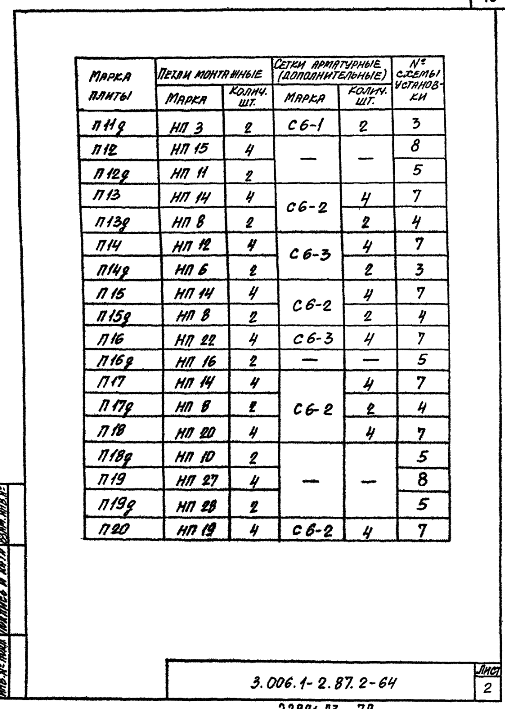 Марка плиты | Петли монтажные | Сетки арматурные (дополнительные) | № схемы установ-ки
Марка | Колич. шт. | Марка | Колич. шт.
П11д | НП 3 | 2 | С6-1 | 2 | 3
П12 | НП 15 | 4 | — | — | 8
П12д | НП 11 | 2 | 5
П13 | НП 14 | 4 | С6-2 | 4 | 7
П13д | НП 8 | 2 | 2 | 4
П14 | НП 12 | 4 | С6-3 | 4 | 7
П14д | НП 6 | 2 | 2 | 3
П15 | НП 14 | 4 | С6-2 | 4 | 7
П15д | НП 8 | 2 | 2 | 4
П16 | НП 22 | 4 | С6-3 | 4 | 7
П16д | НП 16 | 2 | — | — | 5
П17 | НП 14 | 4 | С6-2 | 4 | 7
П17д | НП 8 | 2 | 2 | 4
П18 | НП 20 | 4 | 4 | 7
П18д | НП 10 | 2 | — | — | 5
П19 | НП 27 | 4 | 8
П19д | НП 28 | 2 | 5
П20 | НП 19 | 4 | С6-2 | 4 | 7
3.006.1-2.87.2-64
Лист
2